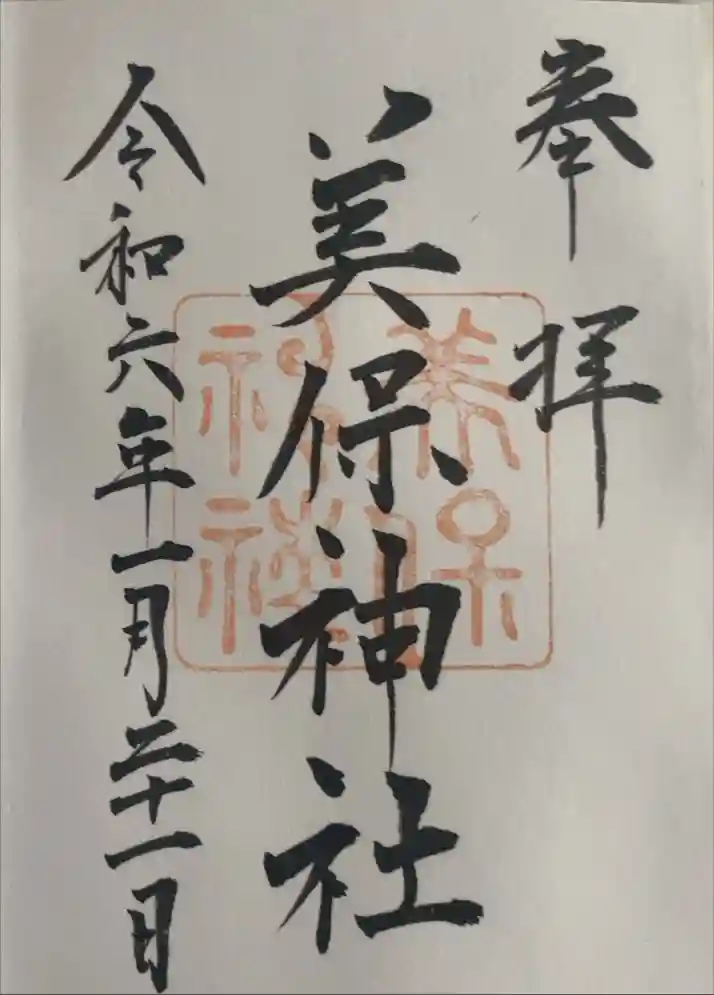 奉拝
美保神社
美保神社
令和六年一月二十一日